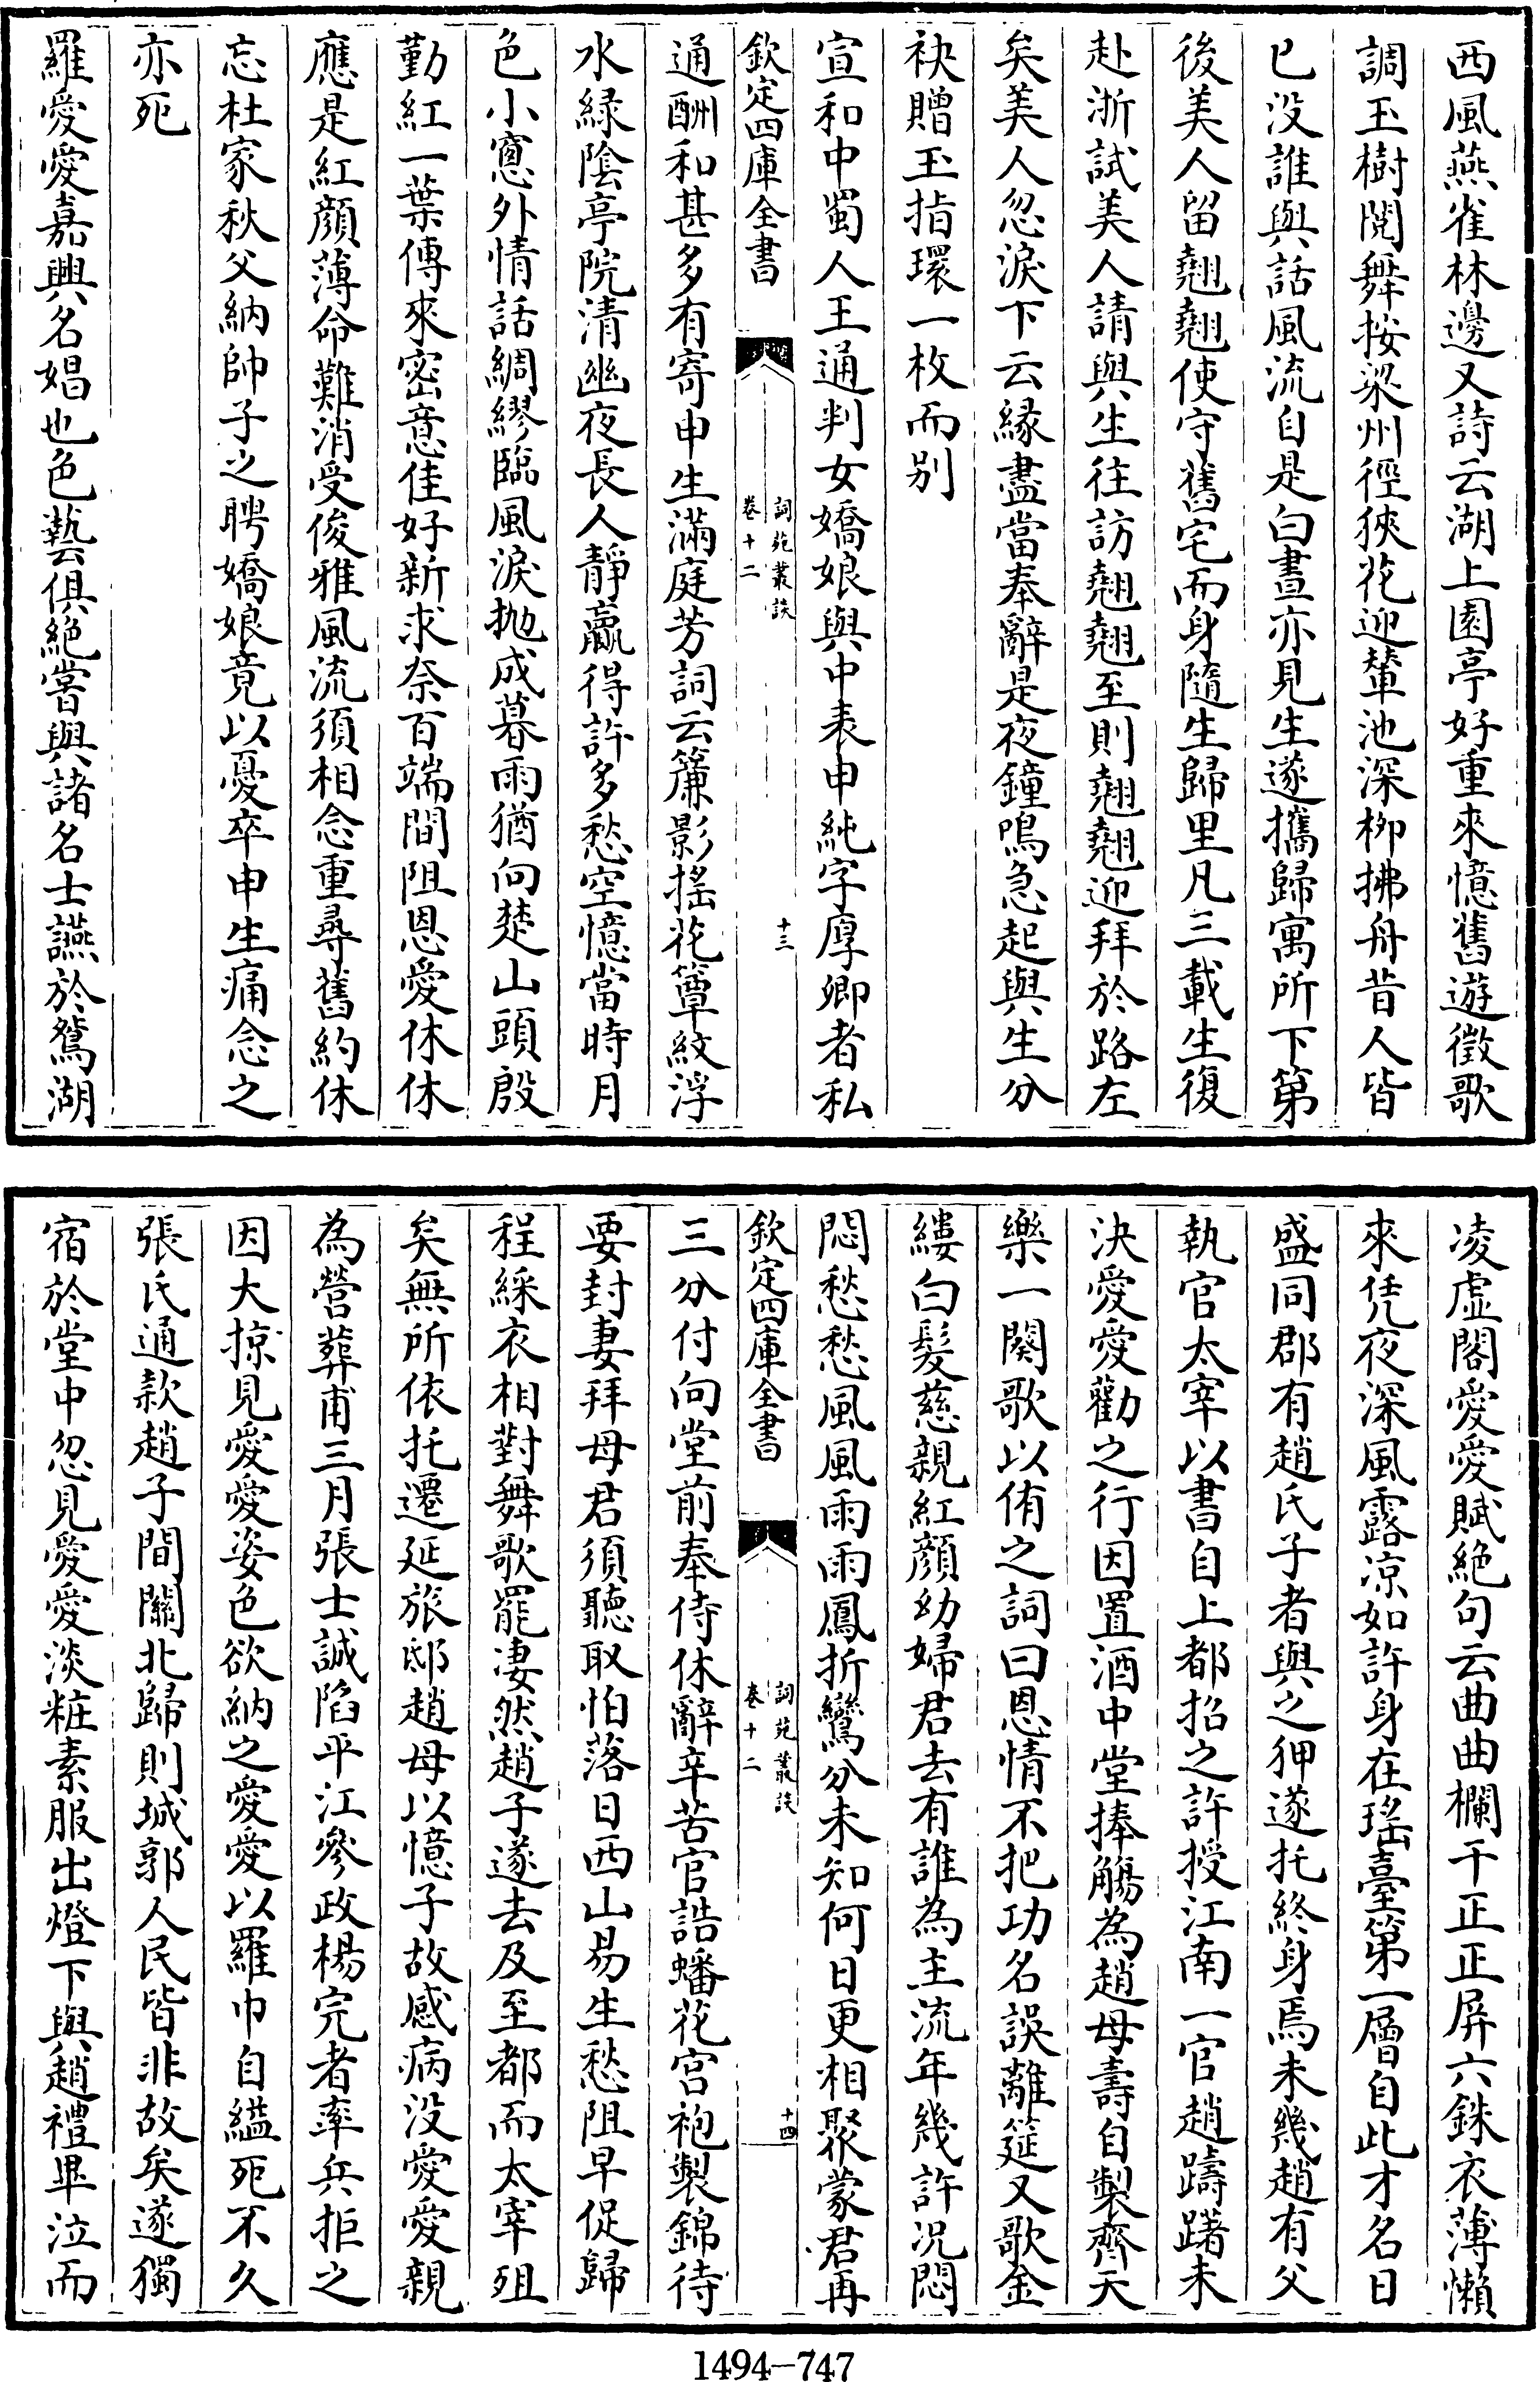 西風燕雀林邊又詩云湖上園亭好重來憶舊遊徵歌
調玉樹閱舞按梁州徑狹花迎輦池深栁拂舟昔人皆
已没誰與話風流自是白晝亦見生遂攜歸寓所下第
後美人留翹翹使守舊宅而身隨生歸里凡三載生復
赴浙試美人請與生往訪翹翹至則翹翹迎拜於路左
矣美人忽淚下云縁盡當奉辭是夜鐘鳴急起與生分
袂贈玉指環一枚而别
宣和中蜀人王通判女嬌娘與中表申純字厚卿者私
欽定四庫全書
詞苑叢談
卷十二
十三
通酬和甚多有寄申生滿庭芳詞云簾影搖花簟紋浮
水緑陰亭院清幽夜長人靜贏得許多愁空憶當時月
色小窻外情話綢繆臨風淚抛成暮雨猶向楚山頭殷
勤紅一葉傳來密意佳好新求奈百端間阻恩愛休休
應是紅顔薄命難消受俊雅風流須相念重尋舊約休
忘杜家秋父納帥子之聘嬌娘竟以憂卒申生痛念之
亦死
羅愛愛嘉興名娼也色藝俱絶嘗與諸名士讌於鴛湖
凌虚閣愛愛賦絶句云曲曲欄干正正屏六銖衣薄懶
來凭夜深風露凉如許身在瑤臺第一層自此才名日
盛同郡有趙氏子者與之狎遂托終身焉未幾趙有父
執官太宰以書自上都招之許授江南一官趙躊躇未
決愛愛勸之行因置酒中堂捧觴為趙母壽自製齊天
樂一闋歌以侑之詞曰恩情不把功名誤離筵又歌金
縷白髮慈親紅顔幼婦君去有誰為主流年幾許况悶
悶愁愁風風雨雨鳳折鸞分未知何日更相聚蒙君再
欽定四庫全書
詞苑叢談
卷十二
十四
三分付向堂前奉侍休辭辛苦官誥蟠花宫袍製錦待
要封妻拜母君須聽取怕落日西山易生愁阻早促歸
程綵衣相對舞歌罷凄然趙子遂去及至都而太宰殂
矣無所依托遷延旅邸趙母以憶子故感病没愛愛親
為營葬甫三月張士誠陷平江參政楊完者率兵拒之
因大掠見愛愛姿色欲納之愛愛以羅巾自縊死不久
張氏通款趙子間關北歸則城郭人民皆非故矣遂獨
宿於堂中忽見愛愛淡粧素服出燈下與趙禮畢泣而
1494-747